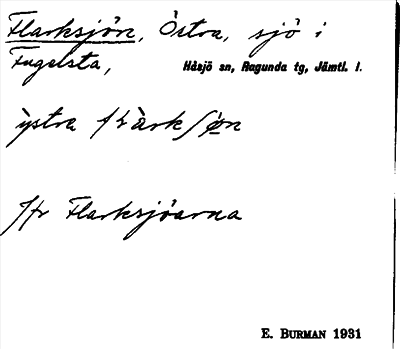 Flarksjön, Östra, sjö i
Fugelsta, Håsjö sn, Ragunda tg, Jämtl. l.
Jfr Flarksjöarna
E. BURMAN 1931